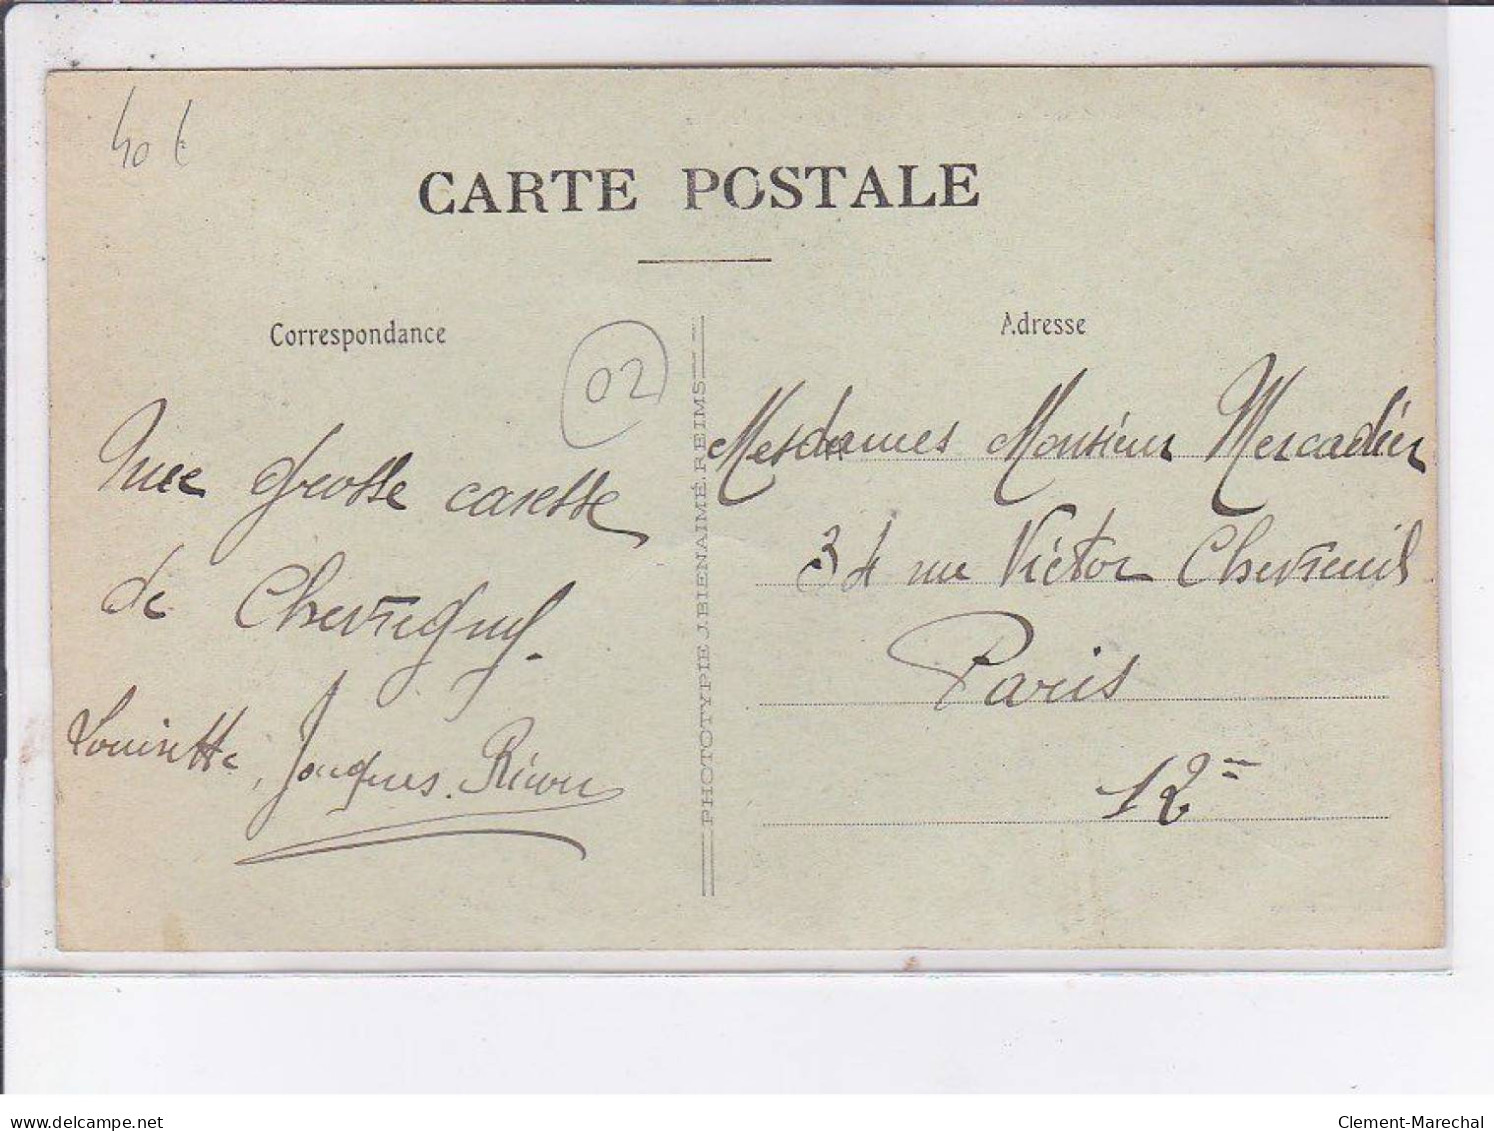 40 €
CARTE POSTALE
Correspondance
02
Une grosse caresse
de Chevregny.
Louisette, Jacques.
PHOTOTYPIE J.BIENAIMÉ.REIMS
Adresse
Mesdames Monsieur Mercadier
34 rue Victor Chevreuil
Paris
12
delcampe.net
Clement-Marechal